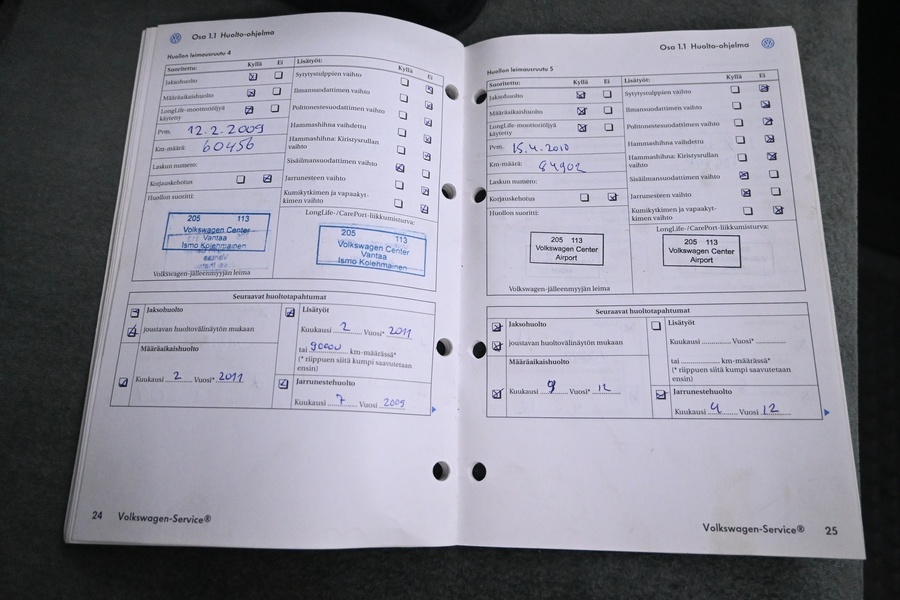 Osa 1.1 Huolto-ohjelma
Huollon leimausruutu 4
Suoritettu: Kyllä Ei
Jaksohuolto
Määräaikaishuolto
LongLife-moottoriöljyä
käytetty
Pvm. 12.2.2009
Km-määrä: 60456
Laskun numero:
Korjauskehotus
Huollon suoritti:
205 113
Volkswagen Center
Vantaa
Ismo Kolehmainen
Volkswagen-jälleenmyyjän leima
Lisätyöt: Kyllä Ei
Sytytystulppien vaihto
Ilmansuodattimen vaihto
Polttonestesuodattimen vaihto
Hammashihna vaihdettu
Hammashihna: Kiristysrullan
vaihto
Sisäilmansuodattimen vaihto
Jarrunesteen vaihto
Kumikytkimen ja vapaakyt-
kimen vaihto
LongLife-/CarePort-liikkumisturva:
205 113
Volkswagen Center
Vantaa
Ismo Kolehmainen
Seuraavat huoltotapahtumat
Jaksohuolto
joustavan huoltovälinäytön mukaan
Määräaikaishuolto
Kuukausi 2 Vuosi* 2011
Lisätyöt
Kuukausi 2 Vuosi* 2011
tai 90000 km-määrässä*
(* riippuen siitä kumpi saavutetaan
ensin)
Jarrunestehuolto
Kuukausi 7 Vuosi 2009
24 Volkswagen-Service®
Osa 1.1 Huolto-ohjelma
Huollon leimausruutu 5
Suoritettu: Kyllä Ei
Jaksohuolto
Määräaikaishuolto
LongLife-moottoriöljyä
käytetty
Pvm. 15.4.2010
Km-määrä: 84902
Laskun numero:
Korjauskehotus
Huollon suoritti:
205 113
Volkswagen Center
Airport
Volkswagen-jälleenmyyjän leima
Lisätyöt: Kyllä Ei
Sytytystulppien vaihto
Ilmansuodattimen vaihto
Polttonestesuodattimen vaihto
Hammashihna vaihdettu
Hammashihna: Kiristysrullan
vaihto
Sisäilmansuodattimen vaihto
Jarrunesteen vaihto
Kumikytkimen ja vapaakyt-
kimen vaihto
LongLife-/CarePort-liikkumisturva:
205 113
Volkswagen Center
Airport
Seuraavat huoltotapahtumat
Jaksohuolto
joustavan huoltovälinäytön mukaan
Määräaikaishuolto
Kuukausi Vuosi* 12
Lisätyöt
Kuukausi Vuosi*
tai km-määrässä*
(* riippuen siitä kumpi saavutetaan
ensin)
Jarrunestehuolto
Kuukausi 4 Vuosi 12
Volkswagen-Service® 25